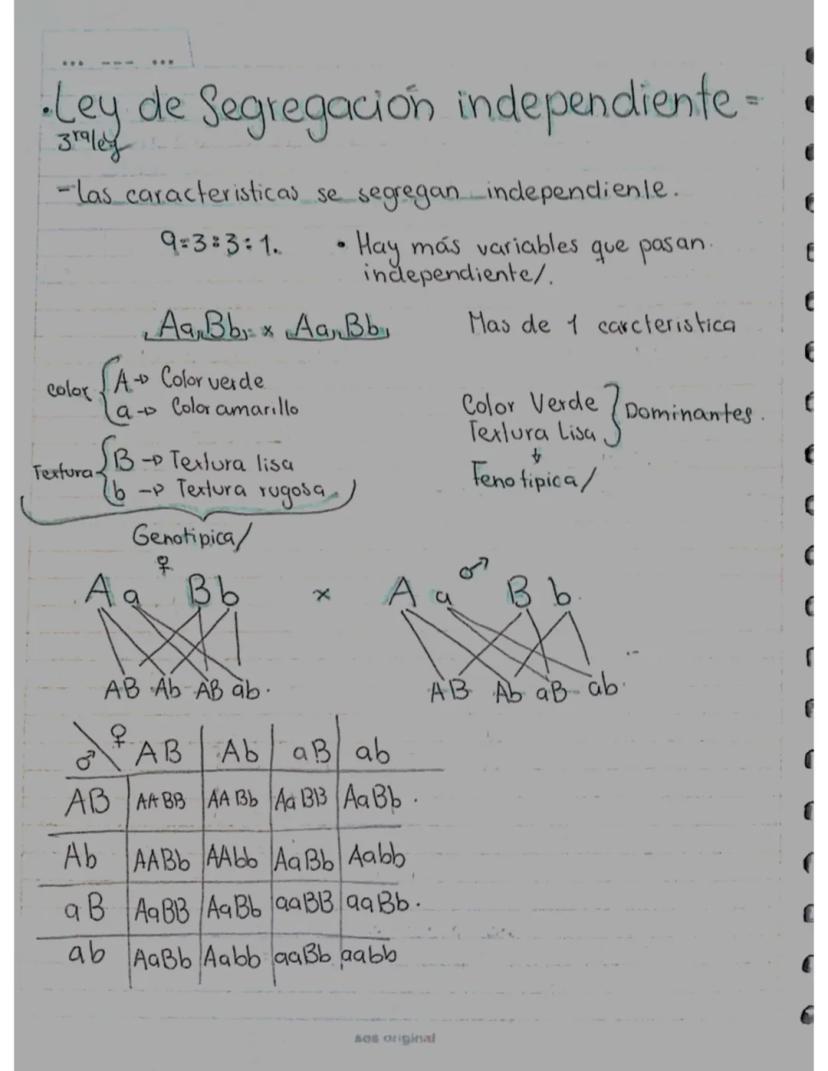 ... --- ...
• Ley de Segregación independiente =
3ra ley
- las caracteristicas se segregan independiente.
9:3:3:1. • Hay más variables que pasan
independiente/.
Aa,Bb, x Aa,Bb, Mas de 1 carcteristica
color { A → Color verde
a → Color amarillo
Color Verde } Dominantes.
Textura Lisa
↓
Fenotipica/
Textura { B → Textura lisa
b → Textura rugosa
Genotipica/
♀ ♂
Aa Bb x A a B b
AB Ab AB ab. AB Ab aB ab.
♂ \ ♀ AB Ab aB ab
AB AABB AABb AaBB AaBb.
Ab AABb AAbb AaBb Aabb
aB AaBB AaBb aaBB aaBb.
ab AaBb Aabb aaBb aabb
sos original